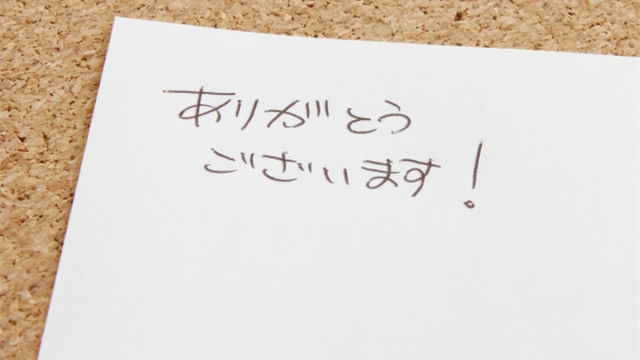 ありがとう
ございます!